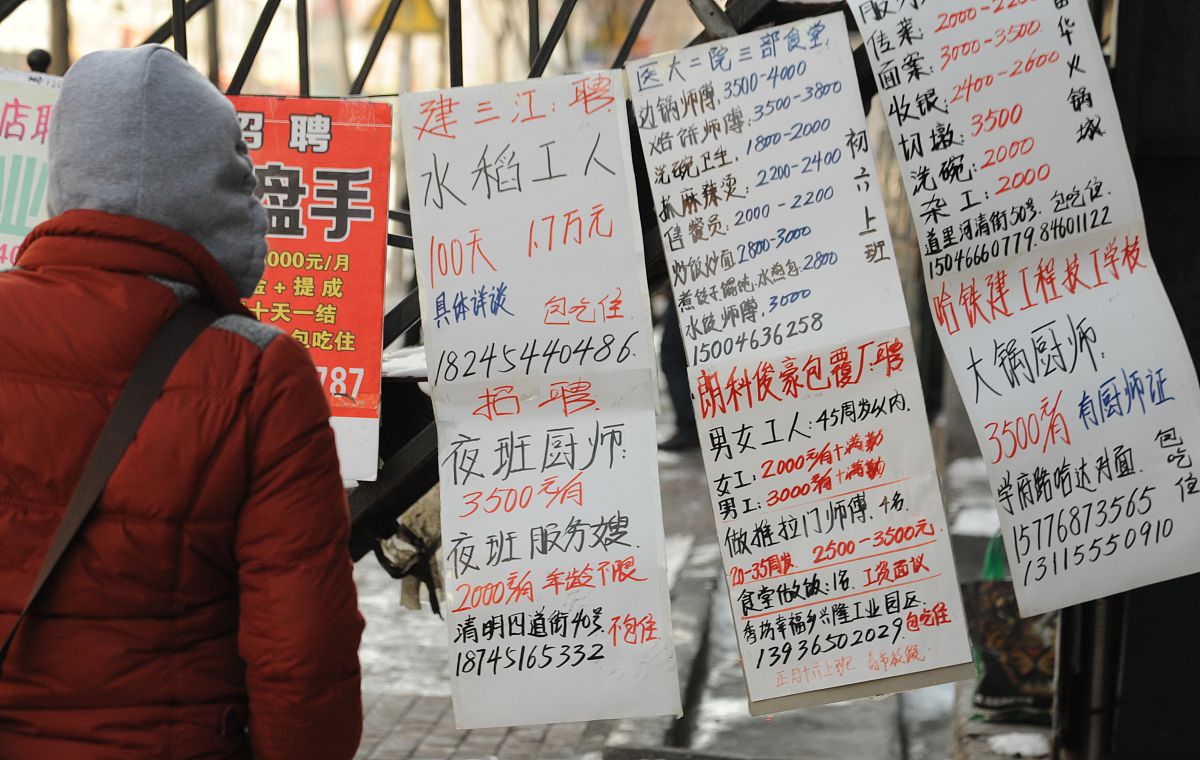 店聘
招聘
盘手
000元/月
金+提成
十天一结
包吃住
787
建三江:聘
水稻工人
100天 1.7万元
具体详谈 包吃住.
18245440486.
招聘.
夜班厨师:
3500元/月
夜班服务嫂
2000元/月 年龄不限
清明四道街40号. 不包住.
18745165332
医大二院三部食堂.
边锅师傅, 3500-4000
烙饼师傅: 3500-3800
洗碗卫生, 1800-2000
抓麻辣烫: 2200-2400
售餐员: 2000-2200
炒饭炒面 2800-3000
煮饺子馄饨, 水煎包. 2800
水饺师傅. 3000
15004636258
初六上班
朗科俊豪包覆厂:聘
男女工人: 45周岁以内.
女工: 2000元/月+满勤
男工: 3000元/月+满勤
做推拉门师傅. 4名.
20-35周岁. 2500-3500元.
食堂做饭: 1名. 工资面议
幸福乡兴隆工业园区.
13936502029. 包吃住
正月十六上班 春节放假.
2000-2200
面案: 3000-3500.
收银: 2400-2600
切墩: 3500
洗碗: 2000
杂工: 2000
道里河清街50号. 包吃住.
15046660779. 84601122
华火锅城
哈铁建工程技工学校
大锅厨师:
3500元/月 有厨师证
学府路哈达对面. 包吃住
15776873565
13115550910